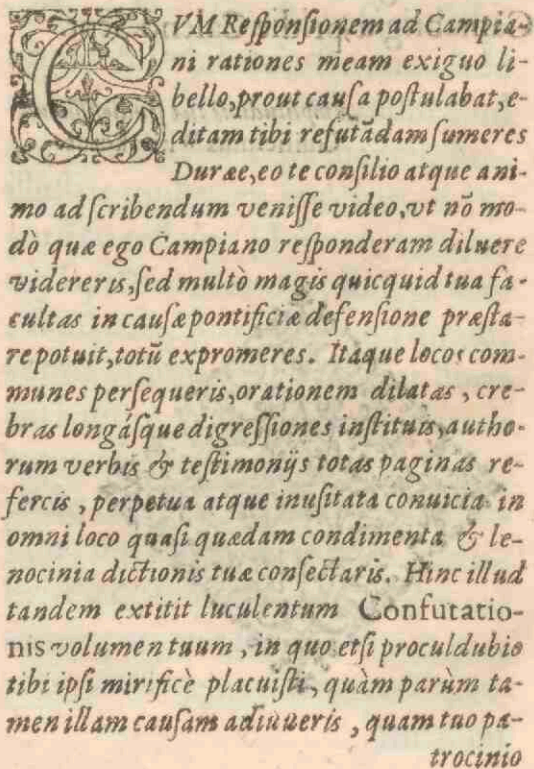 CVM Reſponſionem ad Campia-
ni rationes meam exiguo li-
bello, prout cauſa poſtulabat, e-
ditam tibi refutādam ſumeres
Duræe, eo te conſilio atque ani-
mo ad ſcribendum veniſſe video, vt nō mo-
dò quæ ego Campiano reſponderam diluere
videreris, ſed multò magis quicquid tua fa-
cultas in cauſæ pontificiæ defenſione præſta-
re potuit, totū expromeres. Itaque locos com-
munes perſequeris, orationem dilatas, cre-
bras longáſque digreſſiones inſtituis, autho-
rum verbis & teſtimonijs totas paginas re-
fercis, perpetua atque inuſitata conuicia in
omni loco quaſi quædam condimenta & le-
nocinia dictionis tuæ conſectaris. Hinc illud
tandem extitit luculentum Confutatio-
nis volumen tuum, in quo etſi proculdubio
tibi ipſi mirificè placuiſti, quàm parùm ta-
men illam cauſam adiuueris, quam tuo pa-
trocinio